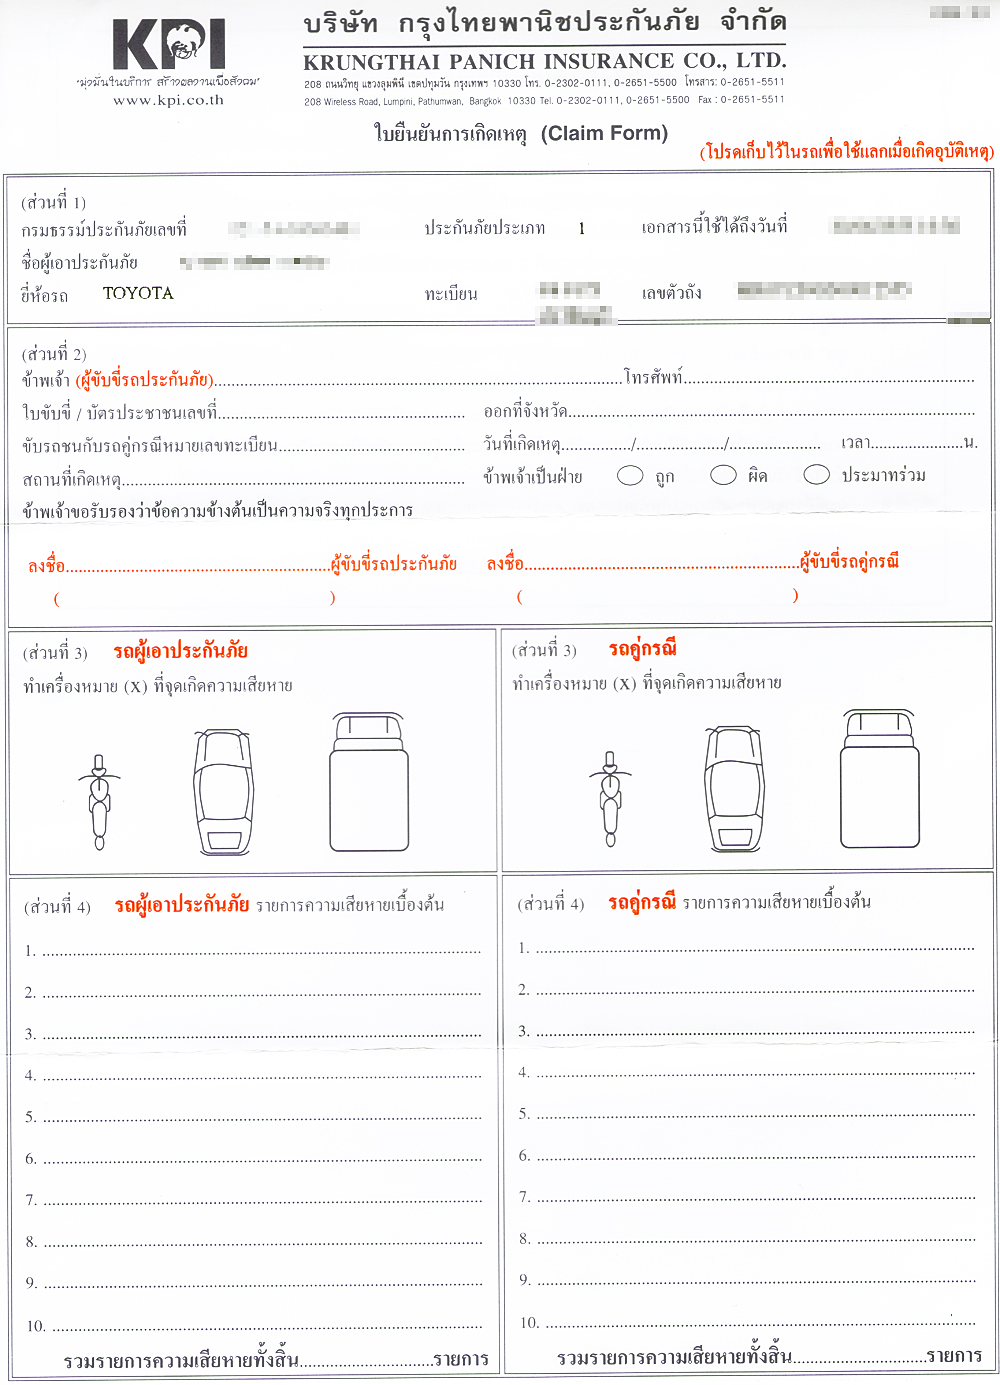 KPI
บริษัท กรุงไทยพานิชประกันภัย จำกัด
KRUNGTHAI PANICH INSURANCE CO., LTD.
"มุ่งมั่นในบริการ สร้างผลงานเพื่อสังคม"
208 ถนนวิทยุ แขวงลุมพินี เขตปทุมวัน กรุงเทพฯ 10330 โทร. 0-2302-0111, 0-2651-5500 โทรสาร: 0-2651-5511
www.kpi.co.th
208 Wireless Road, Lumpini, Pathumwan, Bangkok 10330 Tel. 0-2302-0111, 0-2651-5500 Fax : 0-2651-5511
ใบยืนยันการเกิดเหตุ (Claim Form)
(โปรดเก็บไว้ในรถเพื่อใช้แลกเมื่อเกิดอุบัติเหตุ)
(ส่วนที่ 1)
กรมธรรม์ประกันภัยเลขที่ ประกันภัยประเภท 1 เอกสารนี้ใช้ได้ถึงวันที่
ชื่อผู้เอาประกันภัย
ยี่ห้อรถ TOYOTA ทะเบียน เลขตัวถัง
(ส่วนที่ 2)
ข้าพเจ้า (ผู้ขับขี่รถประกันภัย)..........โทรศัพท์..........
ใบขับขี่ / บัตรประชาชนเลขที่.......... ออกที่จังหวัด..........
ขับรถชนกับรถคู่กรณีหมายเลขทะเบียน.......... วันที่เกิดเหตุ........../........../.......... เวลา..........น.
สถานที่เกิดเหตุ.......... ข้าพเจ้าเป็นฝ่าย ถูก ผิด ประมาทร่วม
ข้าพเจ้าขอรับรองว่าข้อความข้างต้นเป็นความจริงทุกประการ
ลงชื่อ..........ผู้ขับขี่รถประกันภัย ลงชื่อ..........ผู้ขับขี่รถคู่กรณี
( ) ( )
(ส่วนที่ 3) รถผู้เอาประกันภัย
ทำเครื่องหมาย (X) ที่จุดเกิดความเสียหาย
(ส่วนที่ 3) รถคู่กรณี
ทำเครื่องหมาย (X) ที่จุดเกิดความเสียหาย
(ส่วนที่ 4) รถผู้เอาประกันภัย รายการความเสียหายเบื้องต้น
1. ..........
2. ..........
3. ..........
4. ..........
5. ..........
6. ..........
7. ..........
8. ..........
9. ..........
10. ..........
รวมรายการความเสียหายทั้งสิ้น..........รายการ
(ส่วนที่ 4) รถคู่กรณี รายการความเสียหายเบื้องต้น
1. ..........
2. ..........
3. ..........
4. ..........
5. ..........
6. ..........
7. ..........
8. ..........
9. ..........
10. ..........
รวมรายการความเสียหายทั้งสิ้น..........รายการ